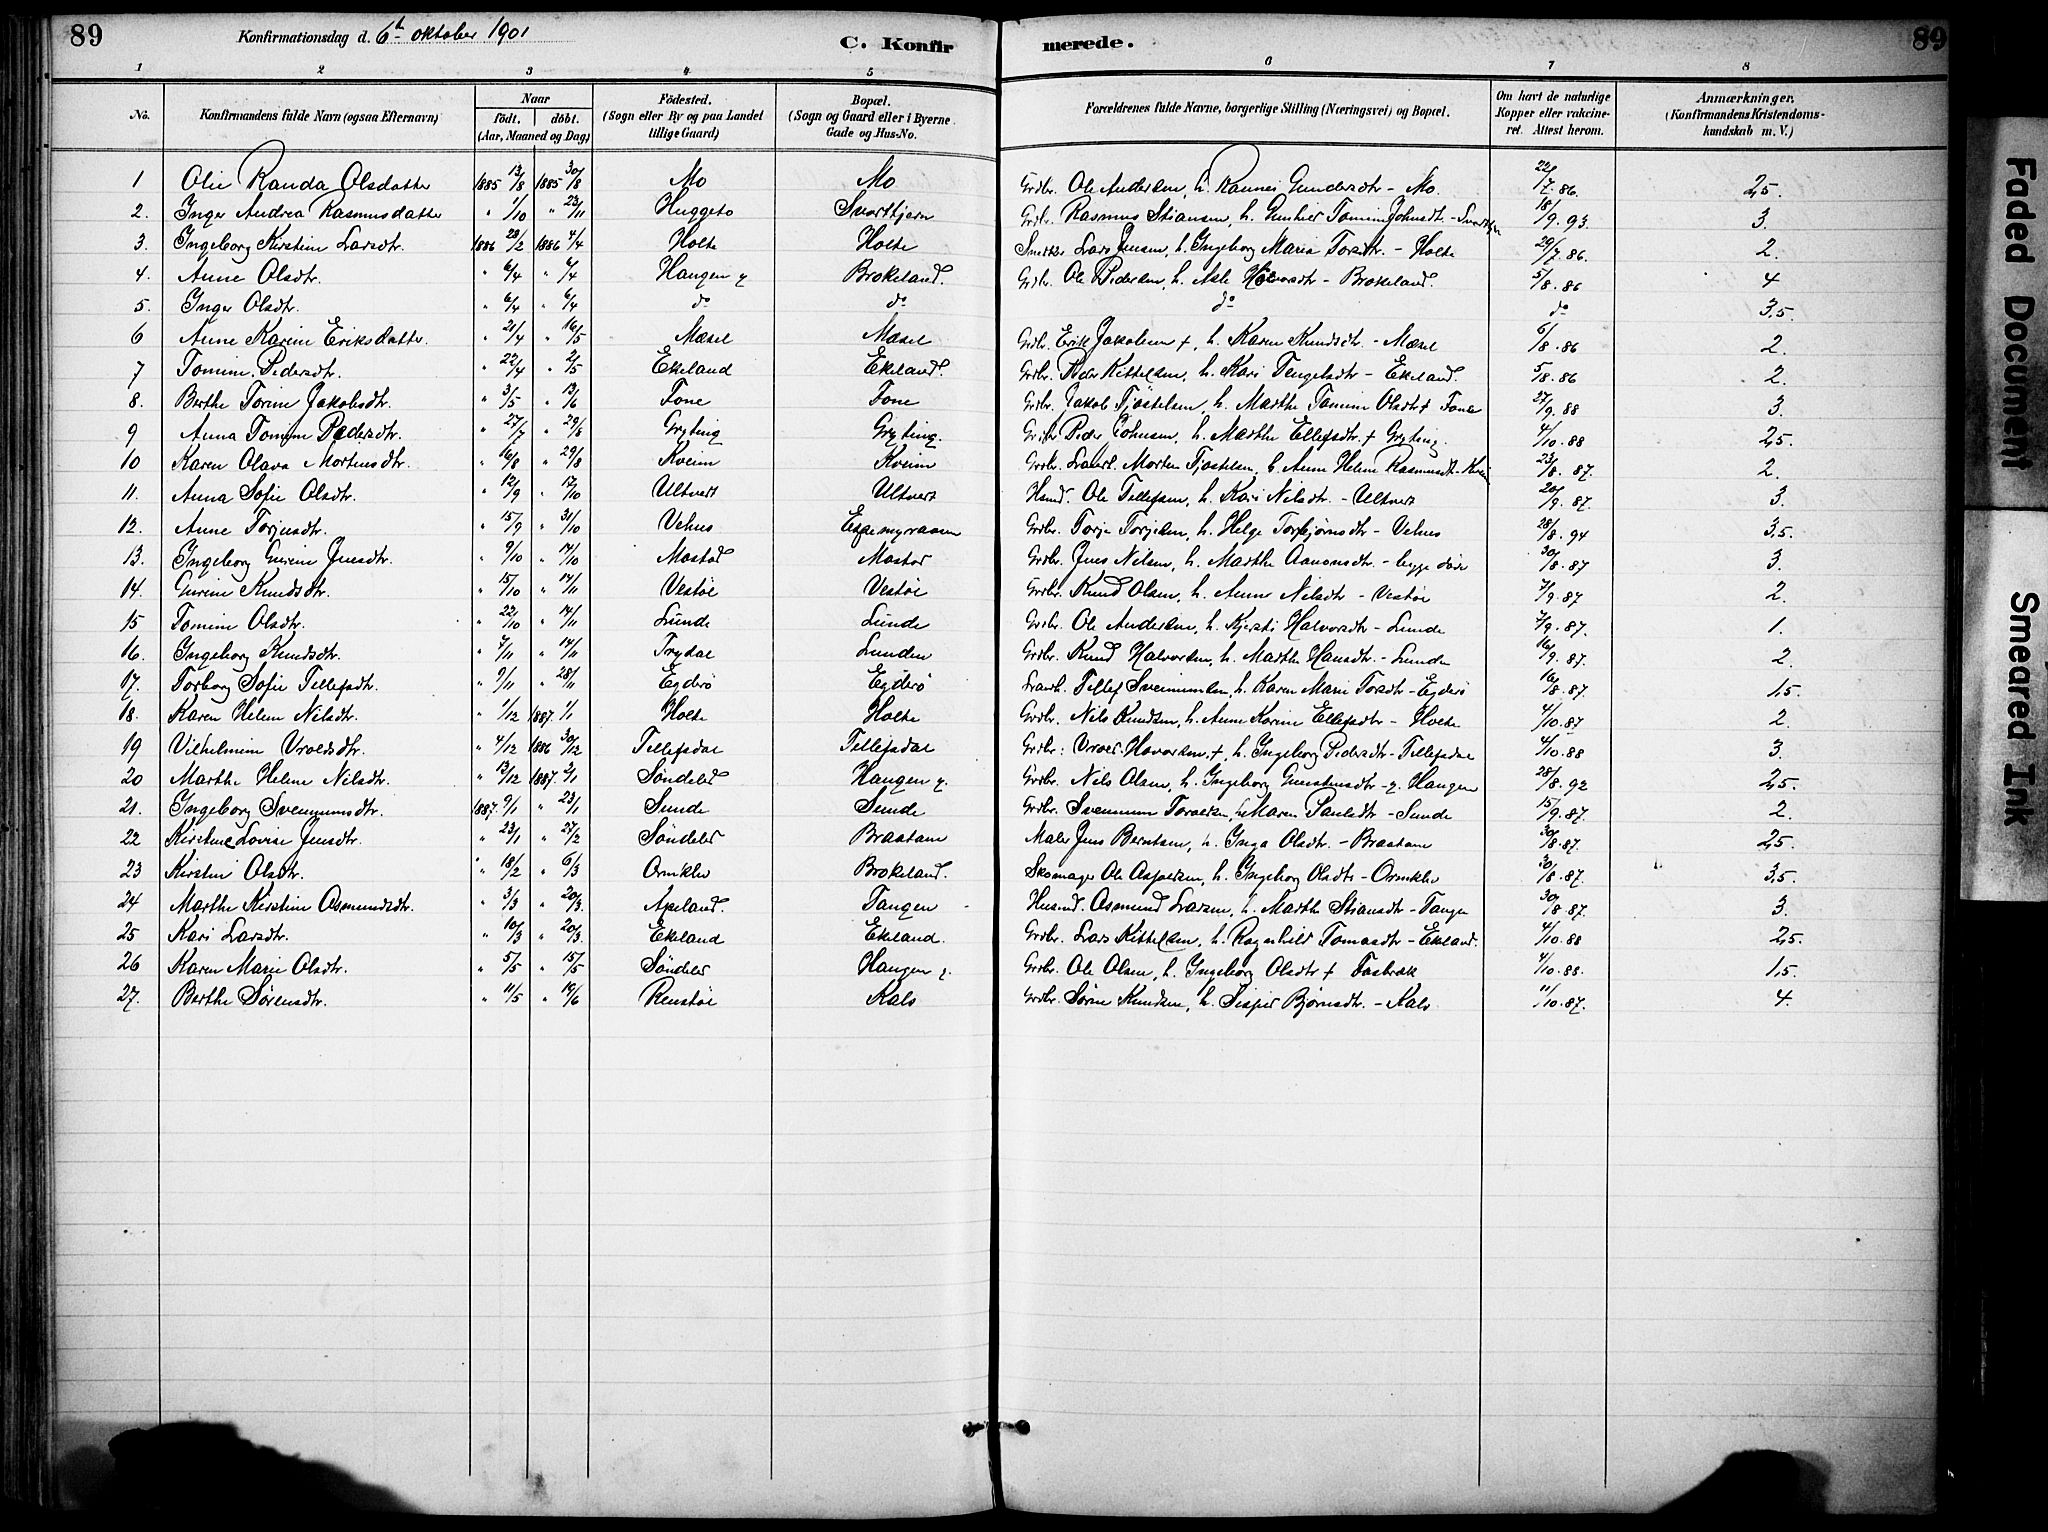 89 Konfirmationsdag d. 6te oktober 1901 C. Konfirmerede. 89
1 2 3 4 5 6 7 8
No. Konfirmandens fulde Navn (ogsaa Efternavn) Naar født. døbt. (Aar, Maaned og Dag) Födested. (Sogn eller By og paa Landet tillige Gaard) Bopæl. (Sogn og Gaard eller i Byerne Gade og Hus-No. Forældrenes fulde Navne, borgerlige Stilling (Næringsvei) og Bopæl. Om havt de naturlige Kopper eller vakcineret. Attest herom. Anmærkninger. (Konfirmandens Kristendomskundskab m. V.)
1 Olie Randa Olsdatter 1885 13/8 1885 30/8 Mo Mo Grdbr. Ole Andersen, h. Rannei Gundersdtr - Mo. 22/7.86. 2,5.
2. Inger Andrea Rasmusdatter " 1/10 " 23/11 Huggeto Svarttjern Grdbr. Rasmus Stiansen, h. Gunhild Tomine Johnsdt. - Svarttjern 18/9.93. 3.
3. Ingeborg Kirstine Larsdtr. 1886 28/2 1886 4/4 Holte Holte Lars Jensen, h. Ingeborg Maria Torsdtr - Holte 29/7.86. 2.
4. Anne Olsdtr. " 6/4 " 6/4 Haugen y Brokeland. Grdbr. Ole Pedersen, h. Asle Halvorsdtr - Brokeland. 5/8.86 4
5. Inger Olsdtr. " 6/4 " 6/4 do do do do 3,5.
6 Anne Karine Eriksdatter. " 21/4 " 16/5 Mæsel Mæsel Grdbr. Erik Jakobsen +, h. Karen Knudsdtr. - Mæsel 6/8.86 2.
7 Tomine Pedersdtr. " 22/4 " 2/5 Ekeland Ekeland. Grdbr. Peder Kittelsen, h. Kari Tengelsdtr - Ekeland. 5/8.86 2.
8. Berthe Torine Jakobsdtr. " 3/5 " 13/6 Fone Fone Grdbr. Jakob Tjøstelsen, h. Marthe Tomine Olsdtr + Fone 27/9.88 3.
9 Anna Tomine Pedersdtr. " 27/7 " 29/8 Gryting Gryting. Grdbr Peder Johnsen, h. Marthe Ellefsdtr. + Gryting. 4/10.88 2,5.
10 Karen Olava Mortensdtr. " 16/8 " 29/8 Kveim Kveim Grdbr. Morten Tjøstelsen, h. Anne Helene Rasmusdt - Kveim 23/8.87. 2.
11. Anna Sofie Olsdtr. " 12/9 " 17/10 Ultveit Ultveit Husmd. Ole Tellefsen, h. Kari Nilsdtr. - Ultveit 20/9.87. 3.
12. Anne Torjusdtr. " 15/9 " 31/10 Vehus Espemyraasen Grdbr. Torje Torjesen, h. Helge Torbjørnsdtr - Vehus 28/8.94 3,5.
13. Ingeborg Gurine Jensdtr. " 9/10 " 14/10 Mostad Mostad Grdbr. Jens Nilsen, h. Marthe Aanonsdtr. - begge døde 30/8.87 3.
14. Gurine Knudsdtr. " 15/10 " 14/11 Vestøl Vestøl Grdbr. Knud Olsen, h. Anne Nilsdtr - Vestøl 7/9.87 2.
15 Tomine Olsdtr. " 22/10 " 14/11 Lunde Lunde Grdbr. Ole Andersen, h. Kjersti Halvorsdtr - Lunde 7/9.87. 1.
16. Ingeborg Knudsdtr. " 7/11 " 14/11 Trydal Lunden Grdbr. Knud Halvorsen, h. Marthe Hansdtr. - Lunden 16/9.87. 2.
17. Torborg Sofie Tellefsdtr. " 9/11 " 28/11 Egderö Egderö Tellef Sveinumsen, h. Karen Marie Torsdtr - Egderö 16/8.87. 1,5.
18. Karen Helene Nilsdtr. " 1/12 1887. 1/1 Holte Holte Grdbr. Nils Knudsen, h. Anne Karine Ellefsdtr - Holte 4/10.87 2.
19 Vilhelmine Vroldsdtr. " 4/12 1886 30/12 Tellefsdal Tellefsdal Grdbr: Vrold Havorsen +, h. Ingeborg Pedersdtr - Tellefsdal 4/10.88 3.
20 Marthe Helene Nilsdtr. " 13/12 1887. 2/1 Söndeled Haugen y. Grdbr. Nils Olsen, h. Ingeborg Gunsteinsdtr - y. Haugen 28/8.92 2,5.
21. Ingeborg Svennumsdtr. 1887. 9/1 " 23/1 Sunde Sunde Grdbr. Svennum Toralsen, h Maren Saulsdtr - Sunde 15/9.87. 2.
22 Kirstine Lovise Jensdtr. " 23/1 " 27/2 Söndeled Braatane Maler Jens Berntsen, h. Inga Olsdtr. - Braatane 30/8.87. 2,5.
23 Kirstine Olsdtr. " 18/2 " 6/3 Ormklev Brokeland. Skomager Ole Aspersen, h. Ingeborg Olsdtr - Ormklev 30/8.87. 3,5.
24 Marthe Kirstine Osmundsdtr. " 3/3 " 20/3. Apeland. Tangen Husmd. Osmund Larsen, h. Marthe Stiansdtr - Tangen 30/8.87. 3.
25 Kari Larsdtr. " 10/3 " 20/3. Ekeland Ekeland. Grdbr. Lars Kittelsen, h. Ragnhild Tomasdtr - Ekeland. 4/10.88 2,5.
26 Karen Marie Olsdtr. " 5/5 " 15/5 Söndeled Haugen y. Grdbr. Ole Olsen, h. Ingeborg Olsdtr + Fosbræk 4/10.88. 1,5.
27. Berthe Sørensdtr. " 11/5 " 19/6 Renstøl Kals Grdbr. Søren Knudsen, h. Bjørnsdtr. - Kals. 11/10.87. 4.
Faded Document
Smeared Ink